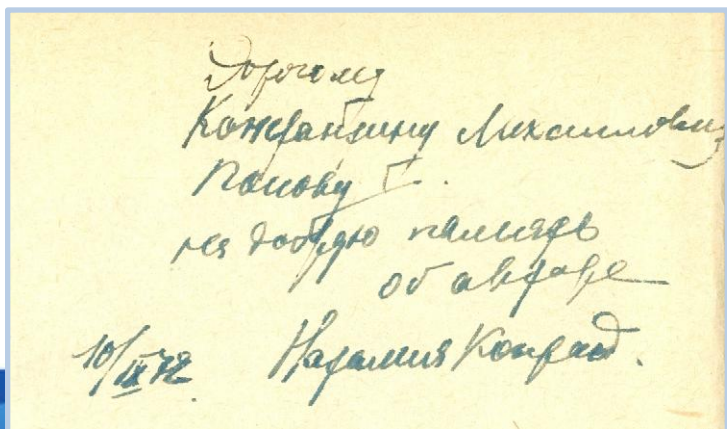 Дорогому
Константину Михайловичу
Попову
на добрую память
об авторе
10/IX 72 Наталия Конрад.